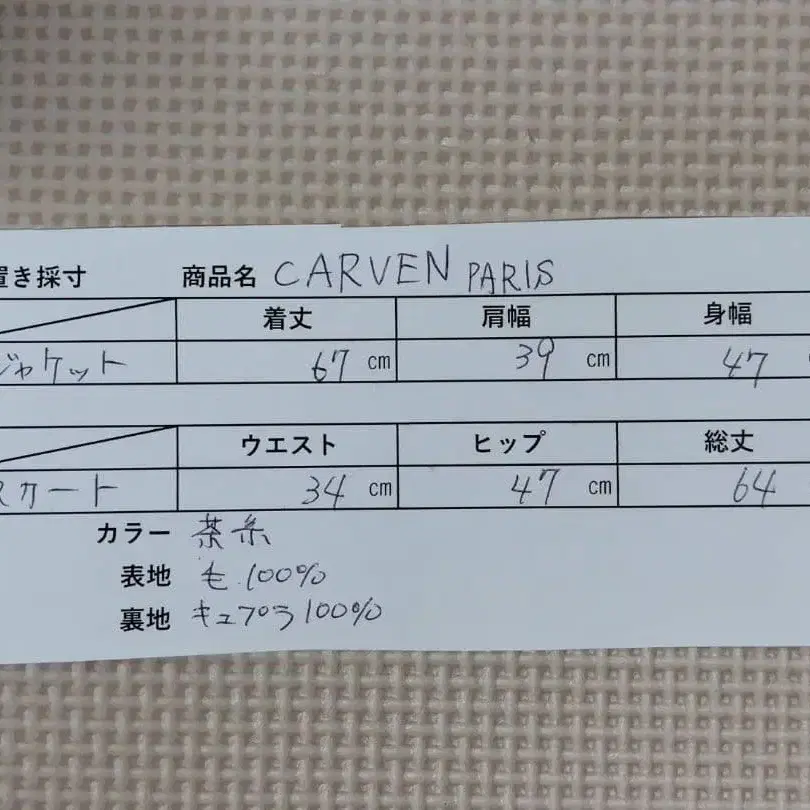 置き採寸 商品名 CARVEN PARIS
着丈 肩幅 身幅
ジャケット 67 cm 39 cm 47
ウエスト ヒップ 総丈
スカート 34 cm 47 cm 64
カラー 茶系
表地 毛100%
裏地 キュプラ100%